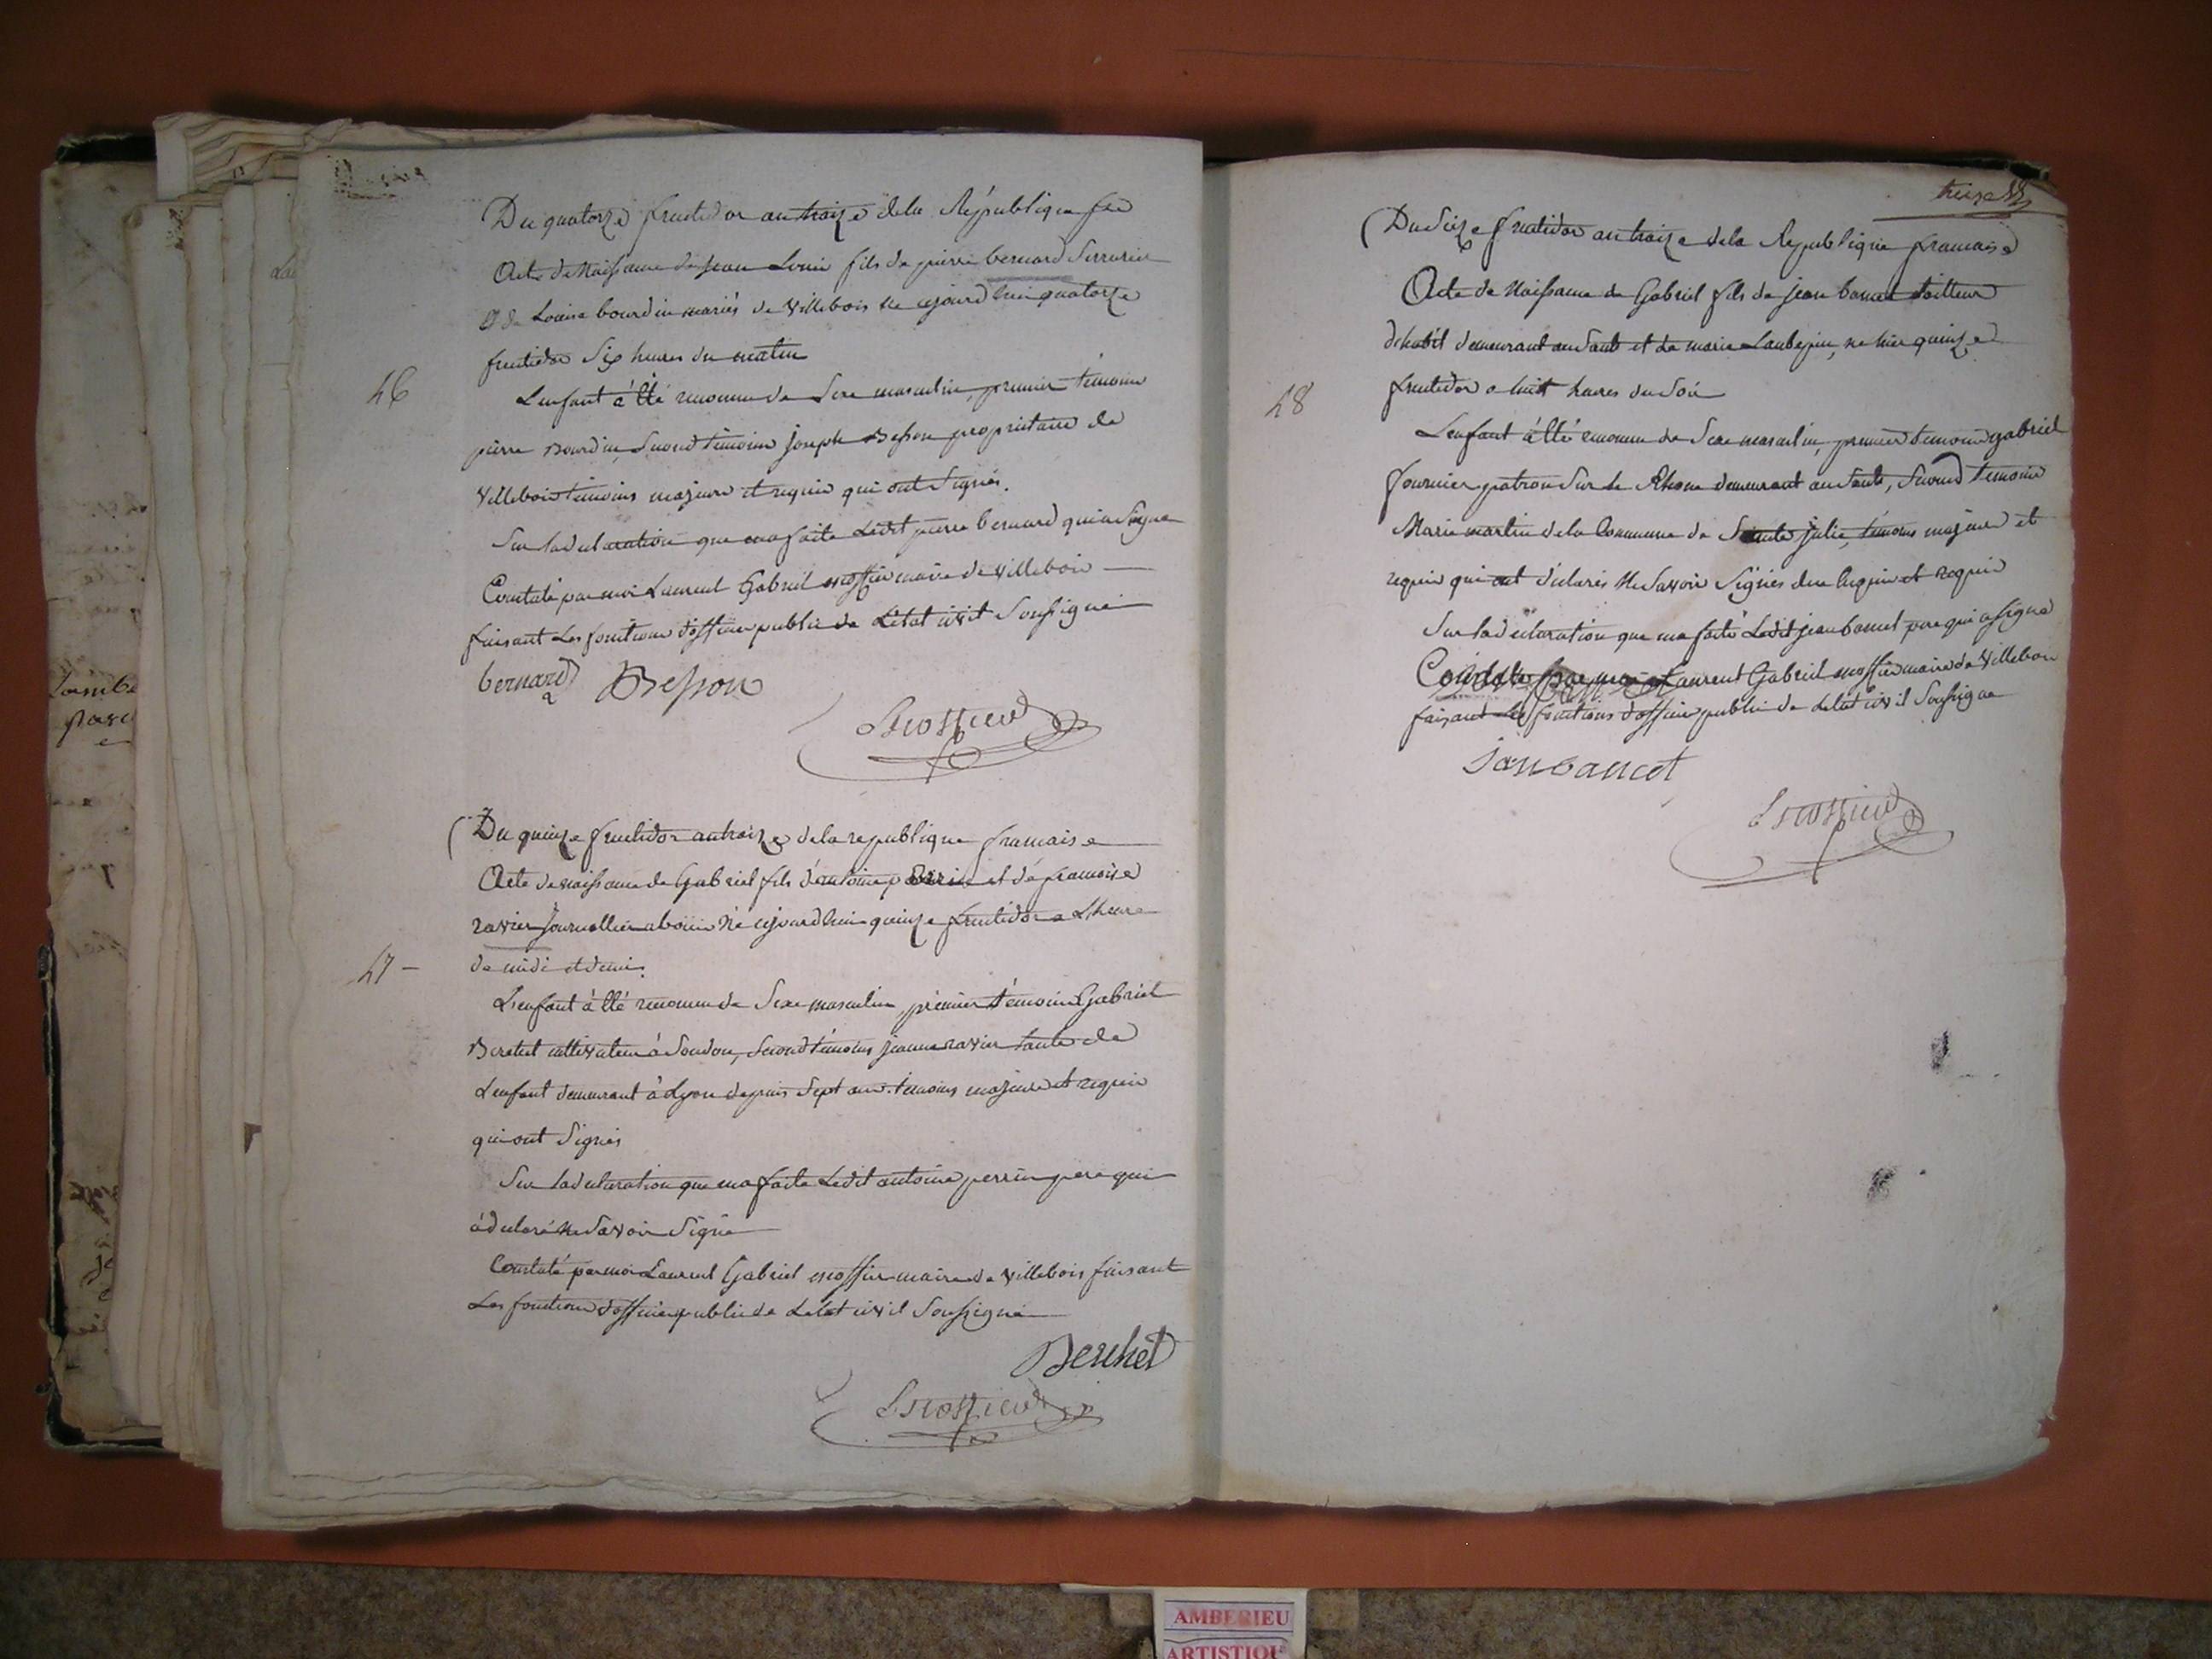 Du quatorze fructidor an treize de la République fse
Acte de Naissance de jean Louis fils de pierre bernard Serrurier
et de Louise bourdin mariés de Villebois né cejourd'huy quatorze
fructidor Six heures du matin
46
L'enfant à été reconnu de Sexe masculin, premier témoin
pierre Bourdin, Second témoin joseph Besson propriétaire de
Villebois témoins majeurs et requis qui ont Signés.
Sur la déclaration que ma faite Ledit pierre bernard qui a Signé
Constaté par moi Laurent Gabriel maire de Villebois
faisant Les fonctions d'officier public de L'état civil Soussigné
bernard Besson
Du quinze fructidor an treize de la republique francaise
Acte de naissance de Gabriel fils d'antoine perrin et de francoise
ravier journallier né cejourd'hui quinze fructidor a L'heure
47 -
de midi et demi.
L'enfant à été reconnu de Sexe masculin, premier témoin Gabriel
Berchet cultivateur à Soudon, Second témoins jeanne ravier tante de
L'enfant demeurant à Lyon depuis Sept ans. témoins majeurs et requis
qui ont Signés
Sur la déclaration que ma faite Ledit antoine perrin pere qui
à déclaré Ne Savoir Signé
Constaté par moi Laurent Gabriel maire de Villebois faisant
Les fonctions d'officier public de Letat civil Soussigné
Berchet
treize
Du Seize fructidor an treize de la Republique francaise
Acte de Naissance de Gabriel fils de jean bancet tailleur
d'habit demeurant au Sault et de marie Laubepin, ne hier quinze
fructidor a huit heures du Soir
48
L'enfant à été reconnu de Sexe masculin, premier temoin gabriel
fournier patron Sur le Rhone demeurant au Sault, Second temoin
Marie martin de la Commune de Sainte julie, témoins majeurs et
requis qui ont déclarés Ne Savoir Signés de ce enquis et requis
Sur la déclaration que ma faite Ledit jean bancet pere qui a signé
Constaté par moi Laurent Gabriel maire de Villebois
faisant Les fonctions d'officier public de Létat civil Soussigné
jan bancet
AMBERIEU
ARTISTIQU